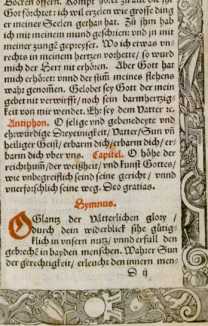 Gottesforcht: ich wil erzelen wie grosse ding
er meiner Seelen gethan hat. Zu jhm hab
ich mit meinem mund geschrien: vnd jn mit
meiner zunge gepreyset. Wo ich etwas vn-
rechts in meinem hertzen hette / so wurd
mich der Herr nit erhören. Aber Gott hat
mich erhöret: vnnd der stim meines flehens
waht genomen. Gelobet sey Gott der mein
gebet nit verwirfft / noch sein barmhertzig-
keit von mir wendet. Ehr sey dem Vatter ꝛc.
Antiphon. O selige vnd gebenedeyte vnd
ehrwürdige Dreyeinigkeit / Vatter / Sun vñ
heiliger Geist / erbarm dich / erbarm dich / er-
barm dich vber vns. Capitel. O höhe der
reichthumb / der weißheit / vnd kunst Gottes /
wie vnbegreifflich seind seine gericht / vnnd
vnerforschlich seine weg. Deo gratias.
Hymnus.
O Glantz der Vätterlichen glory /
durch dein widerblick sihe gütig-
flich in vnsern nutz / vnnd erfüll den
gebrechē in bayden menschen. Wahrer Sun
der gerechtigkeit / erleucht den innern men-
D ij